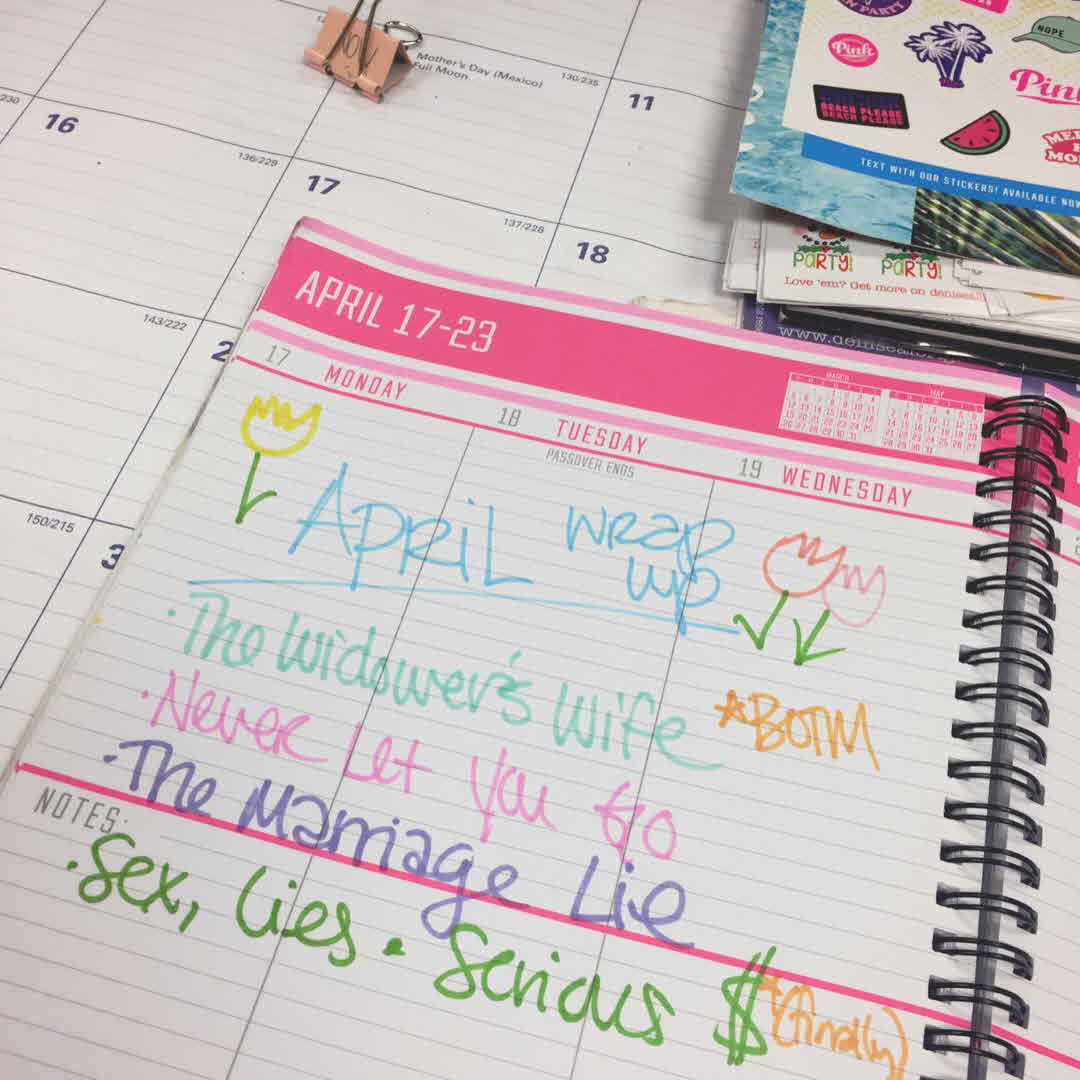 Mother's Day (Mexico)
Full Moon
130/235
11
230
16
136/229
17
137/228
18
143/222
2
150/215
3
EN PARTY
Pink
NOPE
BEACH PLEASE
BEACH PLEASE
TEXT WITH OUR STICKERS! AVAILABLE NOW
PARTY!
PARTY!
Love 'em? Get more on
APRIL 17-23
MARCH
MAY
17 MONDAY
18 TUESDAY
PASSOVER ENDS
19 WEDNESDAY
April wrap
up
· The Widower's Wife *BOTM
· Never Let You Go
· The Marriage Lie
NOTES:
· Sex, Lies & Serious $ *(finally)